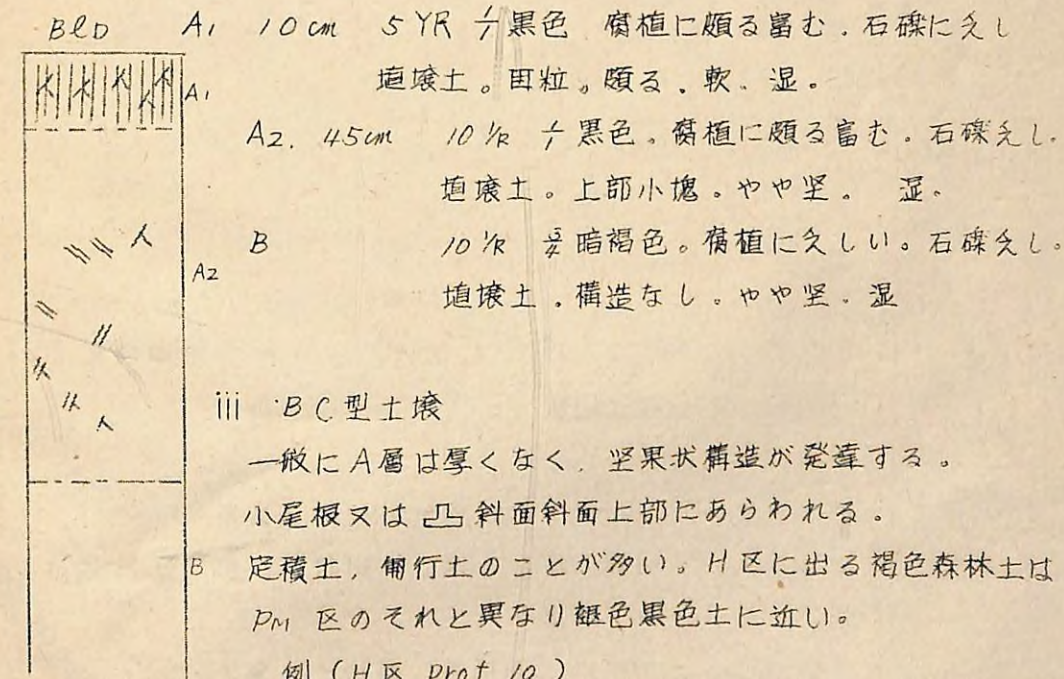 BlD A1 10cm 5YR 1/1 黒色 腐植に頗る富む．石礫に乏し
埴壌土。団粒。頗る．軟、湿。
A1
A2. 45cm 10YR 1/1 黒色。腐植に頗る富む．石礫乏し．
埴壌土。上部小塊。やや堅。湿。
B 10YR 3/4 暗褐色。腐植に乏しい。石礫乏し。
A2
埴壌土．構造なし。やや堅．湿
iii BC型土壌
一般にA層は厚くなく、堅果状構造が発達する。
小尾根又は凸斜面斜面上部にあらわれる。
B
定積土、匍行土のことが多い。H区に出る褐色森林土は
PM区のそれと異なり 色黒色土に近い。
例（H区 prof 10）